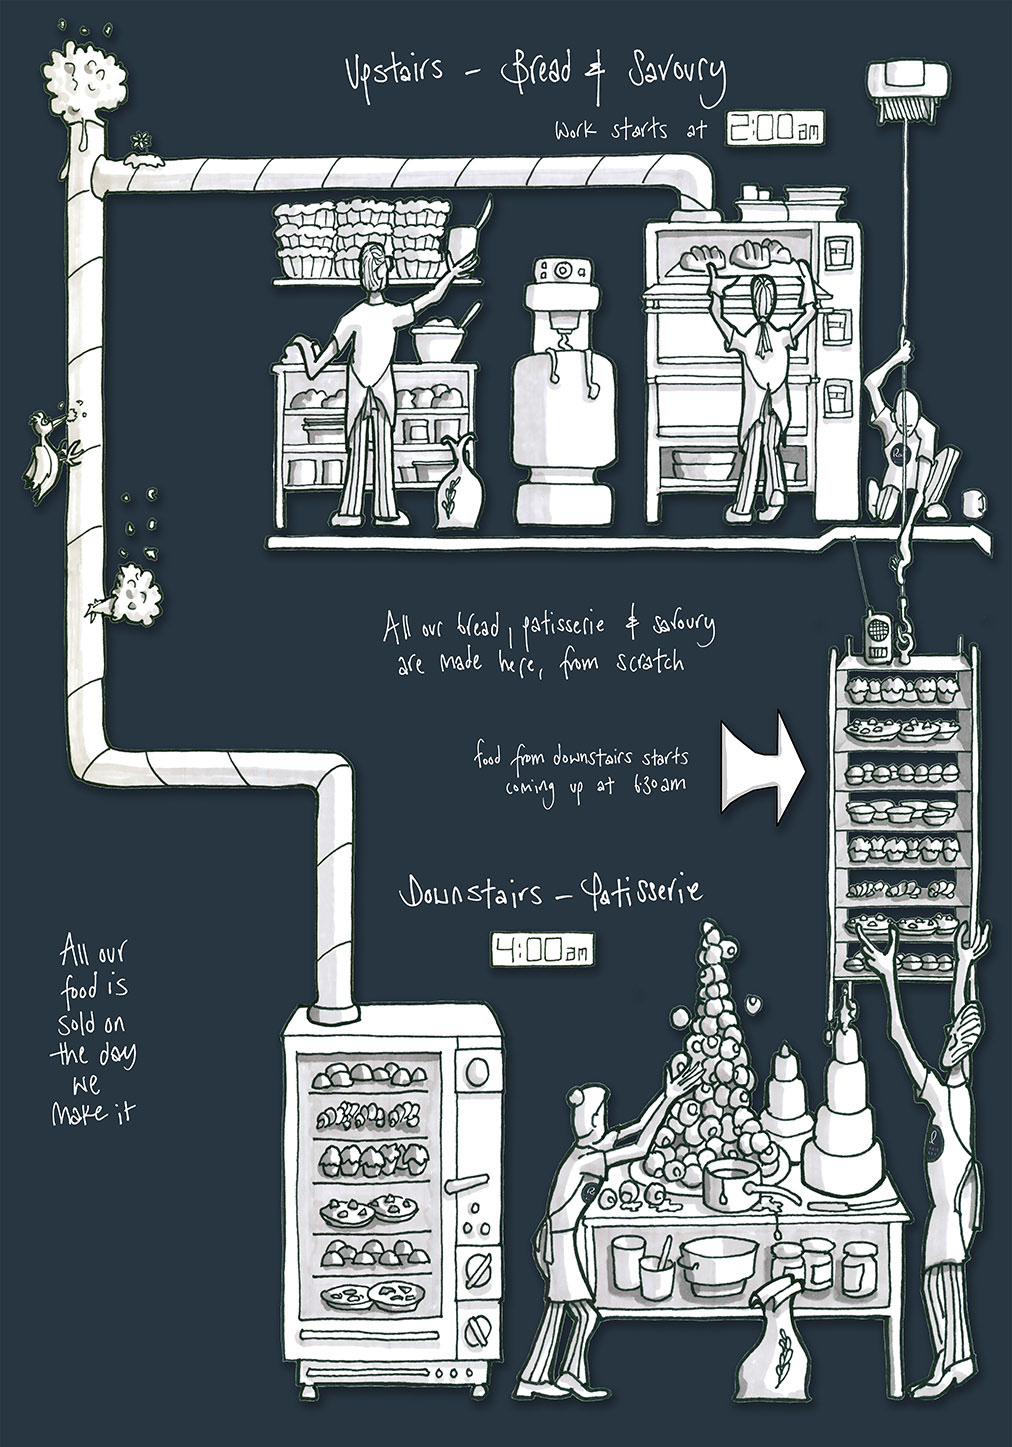 Upstairs - Bread & Savoury
Work starts at 2:00am
All our bread, patisserie & savoury
are made here, from scratch
food from downstairs starts
coming up at 630am
Downstairs - Patisserie
4:00am
All our
food is
sold on
the day
we
make it